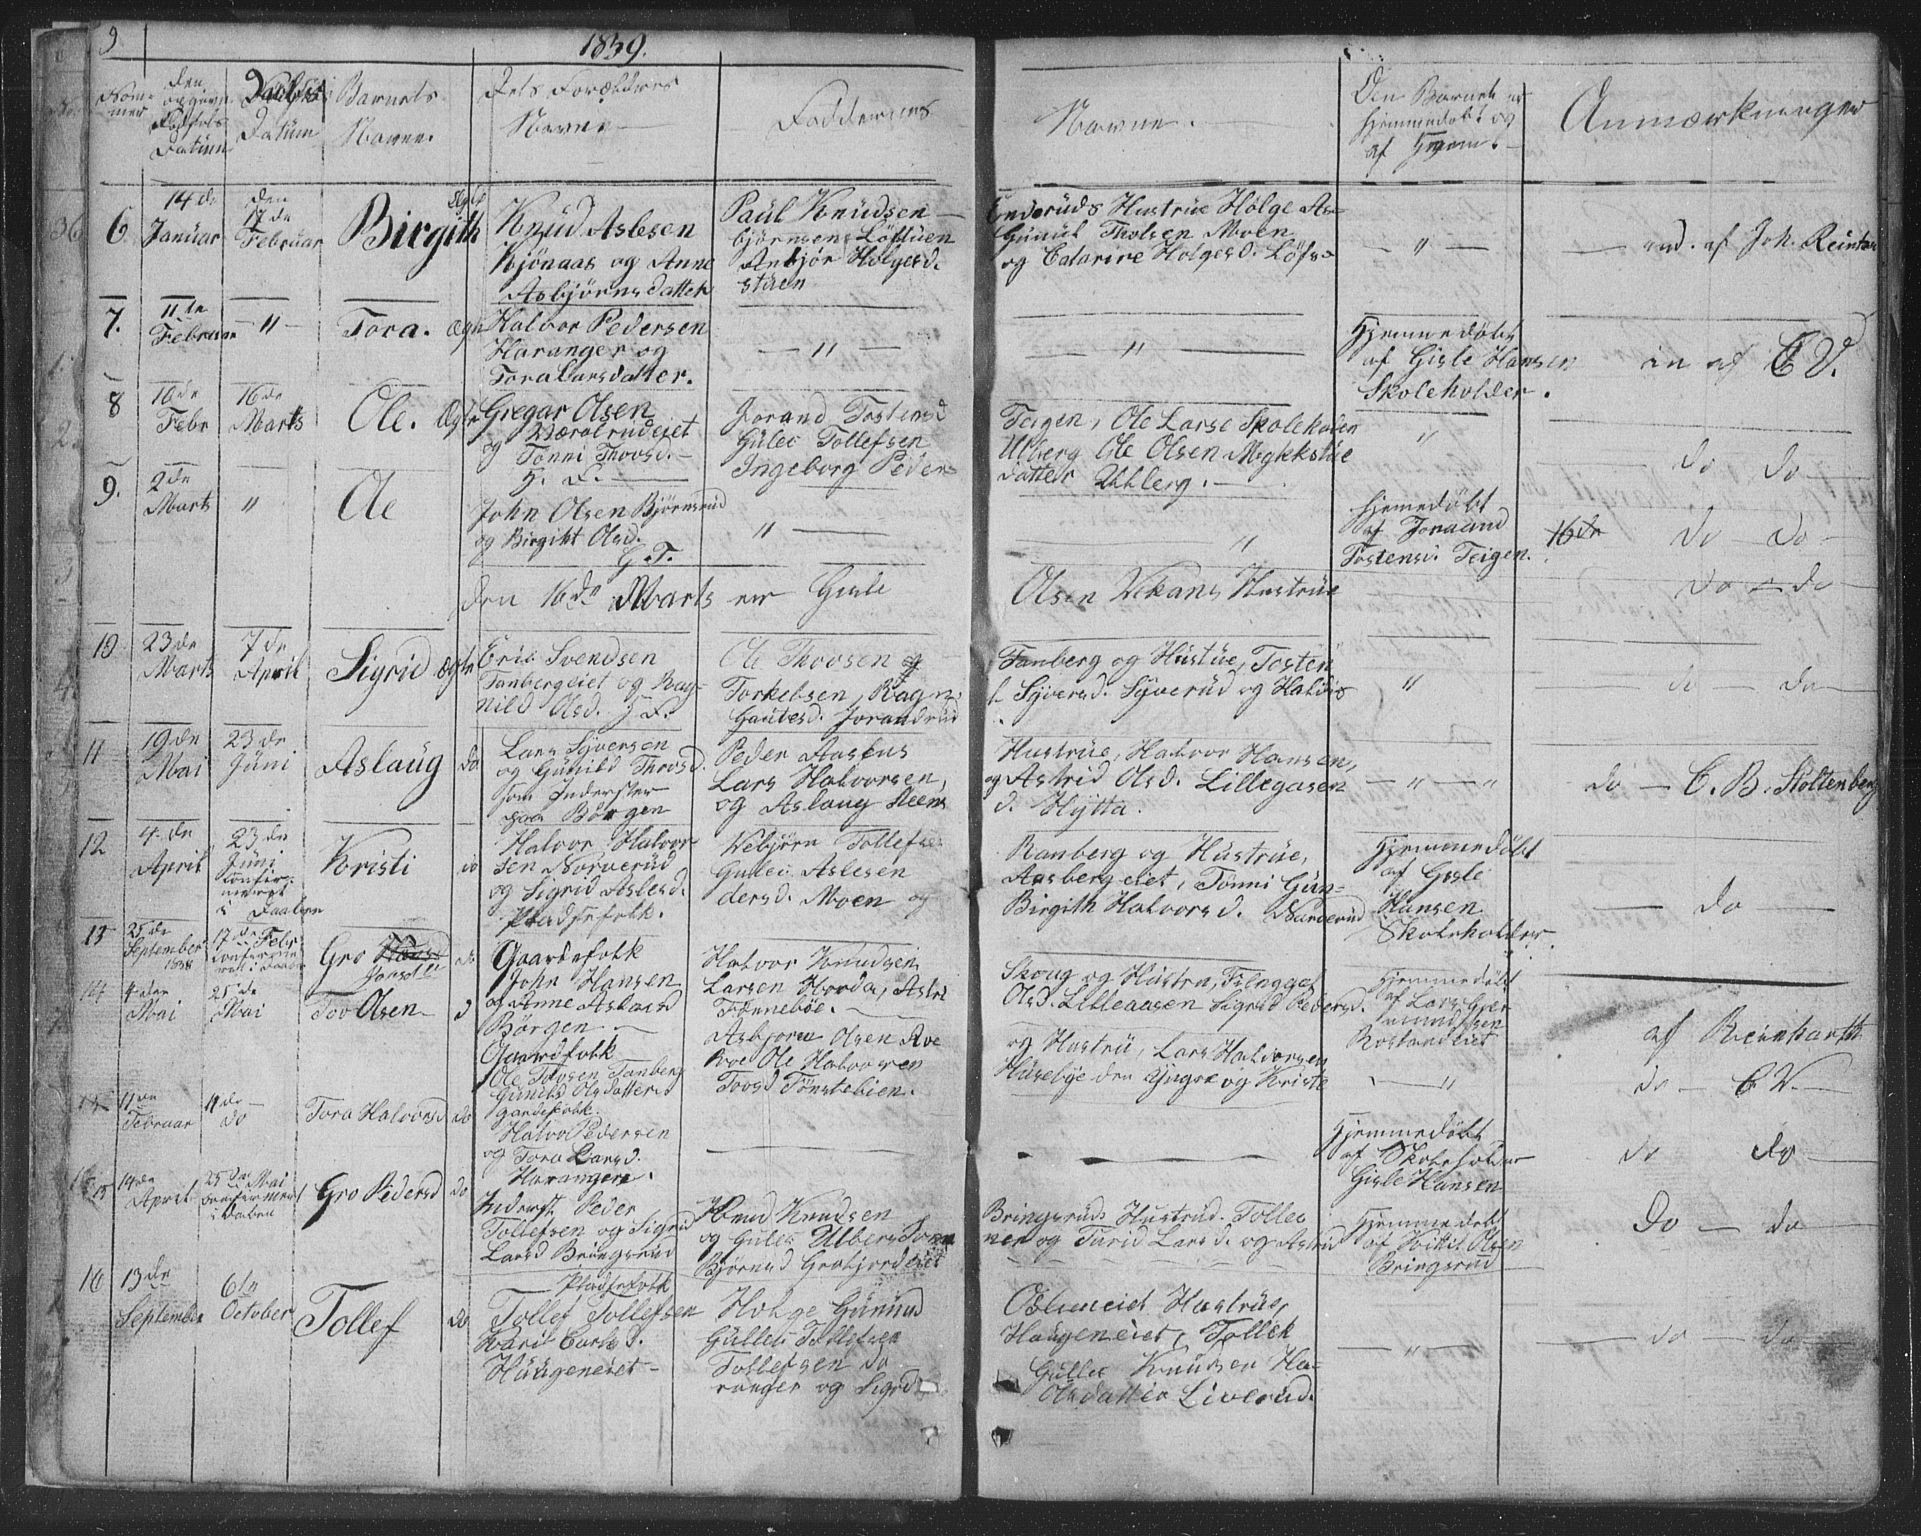 9
1839.
Nom-
mer
den
opgevn
Fødsels
Datum
Daabs
Datum
Barnets
Navne.
Dets Forældres
Navne
Fadderenes
Navne.
Om Barnet er
hjemmedøbt og
af Hvem.
Anmærkninger
6
14de
Januar
den
17de
Februar
Birgith
Knud Aslesen
Kjønaas og Anne
Asbjørnsdatter
Paul Knudsen
bjørnsens Løftuen
Anbjør Holgesd.
stuen
Enderuds Hustrue Holge As-
Gunul Tholsen Moen
og Catarine Holgesd. Løfs-
"
af Joh. Reinton
7.
11te
Februar
"
Tora. Ægte
Halvor Pedersen
Haranger og
Tora Larsdatter.
"
"
Hjemmedøbt
af Gisle Hansen
Skoleholder.
af C V.
8
16de
Febr
16de
Marts
Ole. Ægte
Gregar Olsen
Nærolrudeiet
og Tonni Thovsd.
Jorand Tostensd
Gulec Tollefsen
Ingeborg Peders
Teigen, Ole Larse Skoleholder
Ulberg Ole Olsen Mykkstue
datter Ulberg.
"
do do
9.
2de
Marts
"
Ole
John Olsen Bjørnsrud
og Birgitt Olsd.
G. F.
"
"
Hjemedøbt
af Joraand
Tostensd. Teigen.
16de
do do
den 16de Marts er Gisle
Olsen Vekans Hustrue
do do
10
23de
Marts
7de
April
Sigrid Ægte
Eric Svendsen
Tanbergeiet og Rag-
nild Olsd.
Ole Thovsen og
Torkelsen, Ragn.
Gautesd. Jorandrud
Tanberg og Hustue, Tosten
Syversd. Syverud og Haldis
"
do do
11
19de
Mai
23de
Juni
Aslaug do
Lars Syversen
og Gunild Thovsd.
som Inderster
paa Børgen
Peder Aasens
Lars Halvorsen,
og Aslaug Steens
Hustrue, Halvor Hansen,
og Astrid Olsd. Lillegasen
d. Hytta.
" "
do C. B. Stoltenberg
12
4.de
April
23de
Juni
confir-
meret
i Daaben
Kristi
Halvor Halvor
sen Norverud
og Sigrid Aslesd.
Pladsefolk.
Vebjørn Tollefse
Gulec Aslesen
dersd. Moen og
Ranberg og Hustrue,
Aasbergeiet, Tønni Gun-
Birgith Halvorsd. Narverud
Hjemmedøbt
af Gisle
Hansen
Skoleholder.
do
13
25de
September
1838
17de Febr
confirme
ret i Daaben
Gro
Gaardefolk
John Hansen
og Anne Aslaksd
Børgen
Halvor Knudsen
Larsen Hovda, Astri
Fønnebøe.
Skoug og Hustru,
Olsd. Lilleaasen Sigrid Pedersd.
Hjemmedøbt
af Lars Gut-
mundsen
Roslandeiet
af Reinhardt
14
4de
Mai
25de
Mai
Tov Olsen d
Gaardfolk
Ole Tovsen Tanberg
Gunild Olsdatter
Asbjørn Olsen Roe
Roe Ole Halvorsen
Tovsd Tønstebien.
og Hustru, Lars Halvorsen
Husebye den yngre og Kriste
"
do C V.
15
11de
Februar
11de
do
Tora Halvorsd do
Gardefolk.
Halvor Pedersen
og Tora Larsd.
Harangere.
Hjemmedøbt
af Skoleholder
Gisle Hansen
do do
15
14de
April
25de Mai
confirmeret
i Daben
Gro Pedersd do
Inderst Peder
Tollefsen og Sigrid
Larsd Bringsrud
Knud Knudsen
og Gulec Ulbers Tom
Bjørnsd Grobjordeiet
Bringsruds Hustrud. Tollec
ner og Turid Larsd. og Astrid
Hjemmedøbt
af Kittil Olsen
Bringsrud
Do do
16
13de
September
6te
October
Tollef do
Pladsefolk
Tollef Tollefsen
Kari Carlsd.
Haugeneiet
Holge Gunuld
Gullec Tollefsen
Tollefsen do
ranger og Sigrd
Oslineiet Hustrue,
Haugeneiet, Tollek
Gullec Knudsen Ha-
Olsdatter Liverud.
"
do do